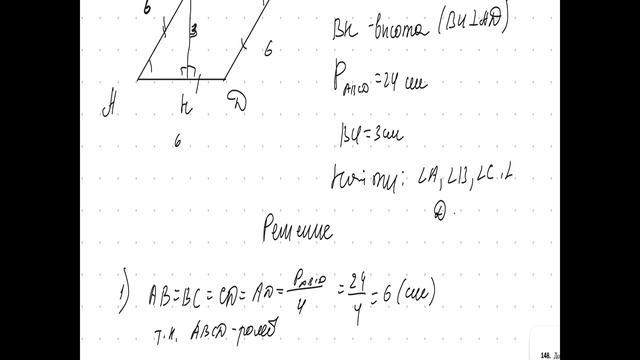 6
3
6
A
H
D
6
BH - высота (BH⊥AD)
P ABCD = 24 см
BH = 3 см
Найти: ∠A, ∠B, ∠C, ∠
D.
Решение
1) AB = BC = CD = AD = P ABCD / 4 = 24 / 4 = 6 (см)
т.к. ABCD - ромб
148.